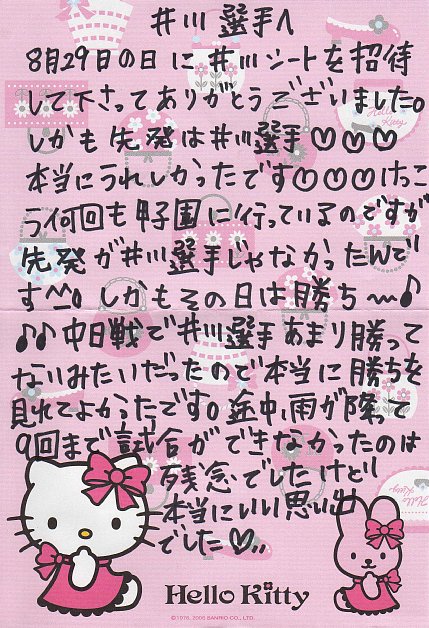 井川 選手へ
8月29日の日に井川シートを招待
して下さってありがとうございました。
しかも先発は井川選手♡♡♡
本当にうれしかったです♡♡♡けっこ
う何回も甲子園に行っているのですが
先発が井川選手じゃなかったんで
す^^。しかもその日は勝ち〜♪
♪♪中日戦で井川選手あまり勝って
ないみたいだったので本当に勝ちを
見れてよかったです。途中、雨が降って
9回まで試合ができなかったのは
残念でしたけど
本当にいい思い出
でした♡
Hello Kitty
©1976, 2005 SANRIO CO., LTD.